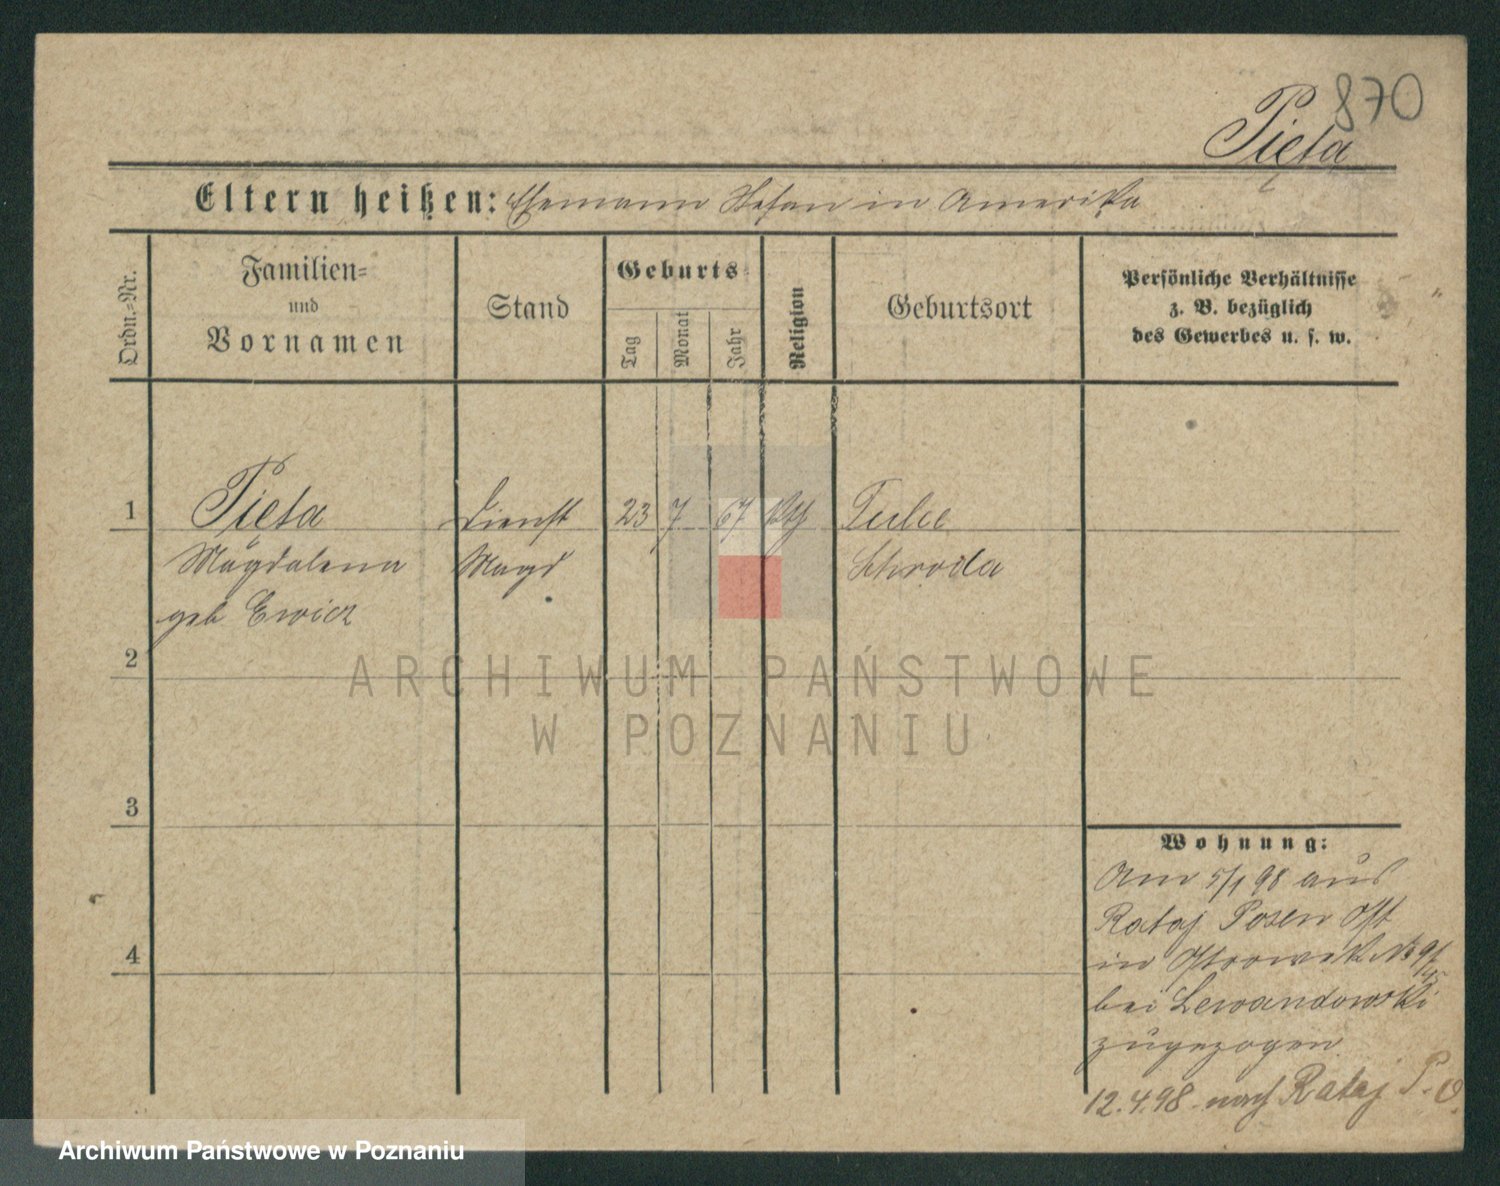 870
Pieta
Eltern heißen: Ehemann Stefan in Amerika
Ordn.-Nr.
Familien-
und
Vornamen
Stand
Geburts
Tag
Monat
Jahr
Religion
Geburtsort
Persönliche Verhältnisse
z. B. bezüglich
des Gewerbes u. s. w.
1 Pieta Dienst 23 7 67 Tulce
Magdalena Magd Schroda
geb Ewicz
2
ARCHIWUM PAŃSTWOWE
W POZNANIU
3
4
Wohnung:
Am 5/1 98 aus
Rataj Posen Ost
in Ostrowek No 9/
bei Lewandowski
zugezogen
12.4.98. nach Rataj P. O.
Archiwum Państwowe w Poznaniu